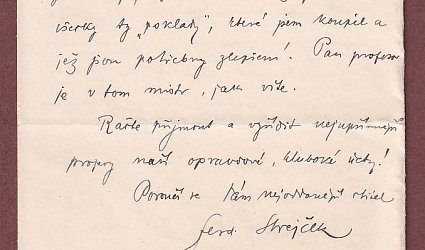 všecky ty „poklady", které jsem koupil a
jež jsou potřebny zlepšení! Pan profesor
je v tom mistr, jak víte.
Račte přijmout a vyřídit nejupřímnější
projevy naší opravdové, hluboké úcty!
Poroučí se Vám nejoddanější ctitel
Ferd. Strejček